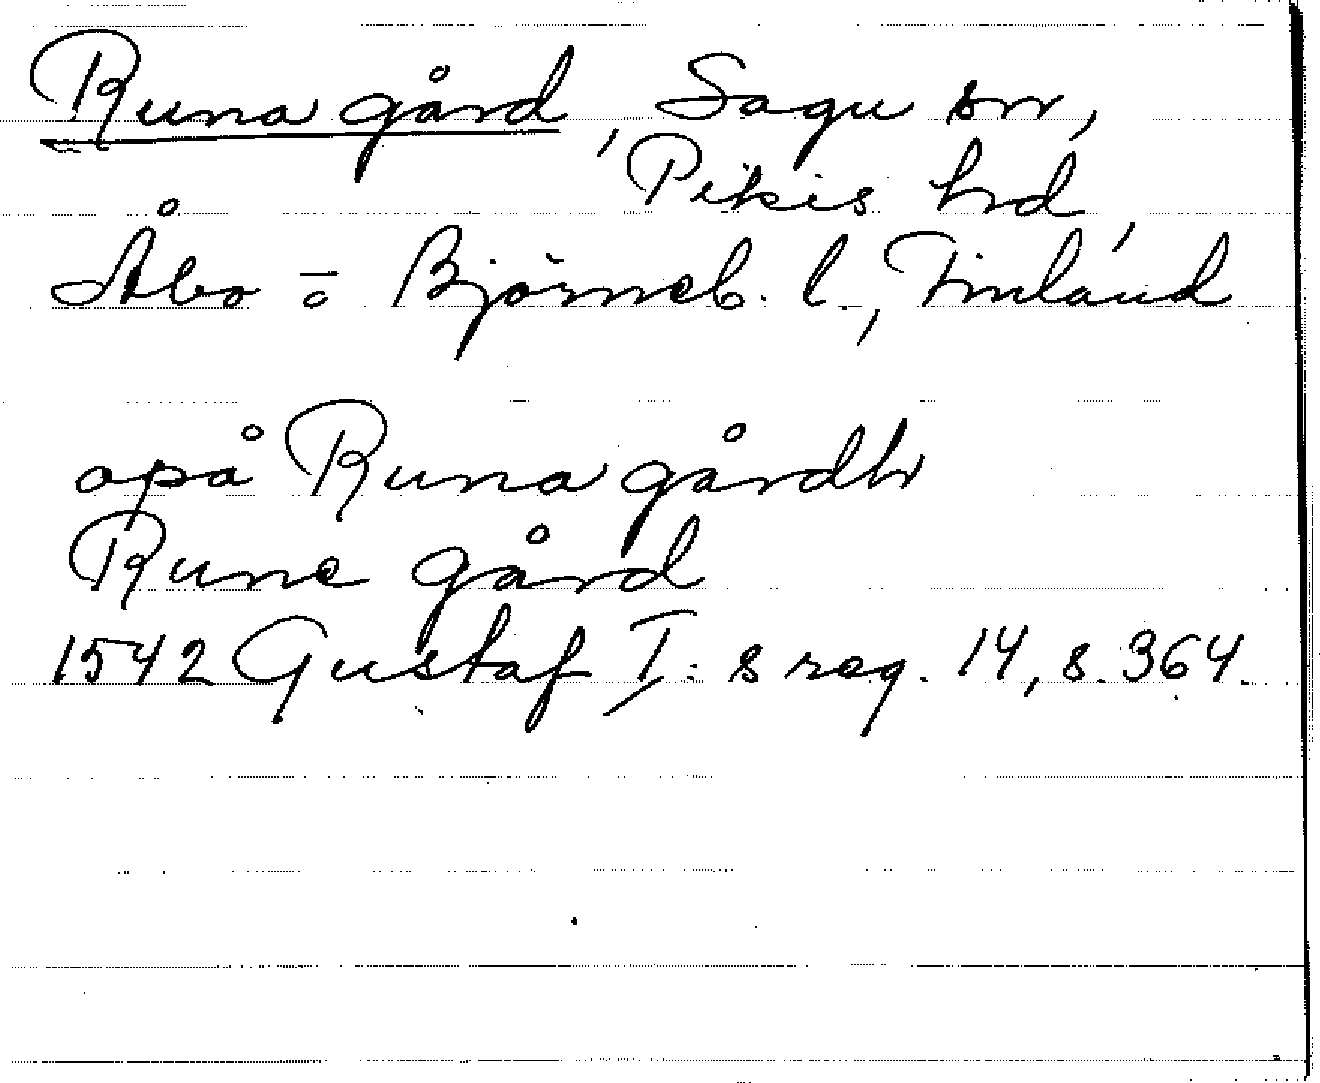 Runagård, Sagu sn,
Pikis hd,
Åbo - o Björneb. l., Finland
opå Runagårdh
Rune gård
1542 Gustaf I: s reg. 14, s. 364.